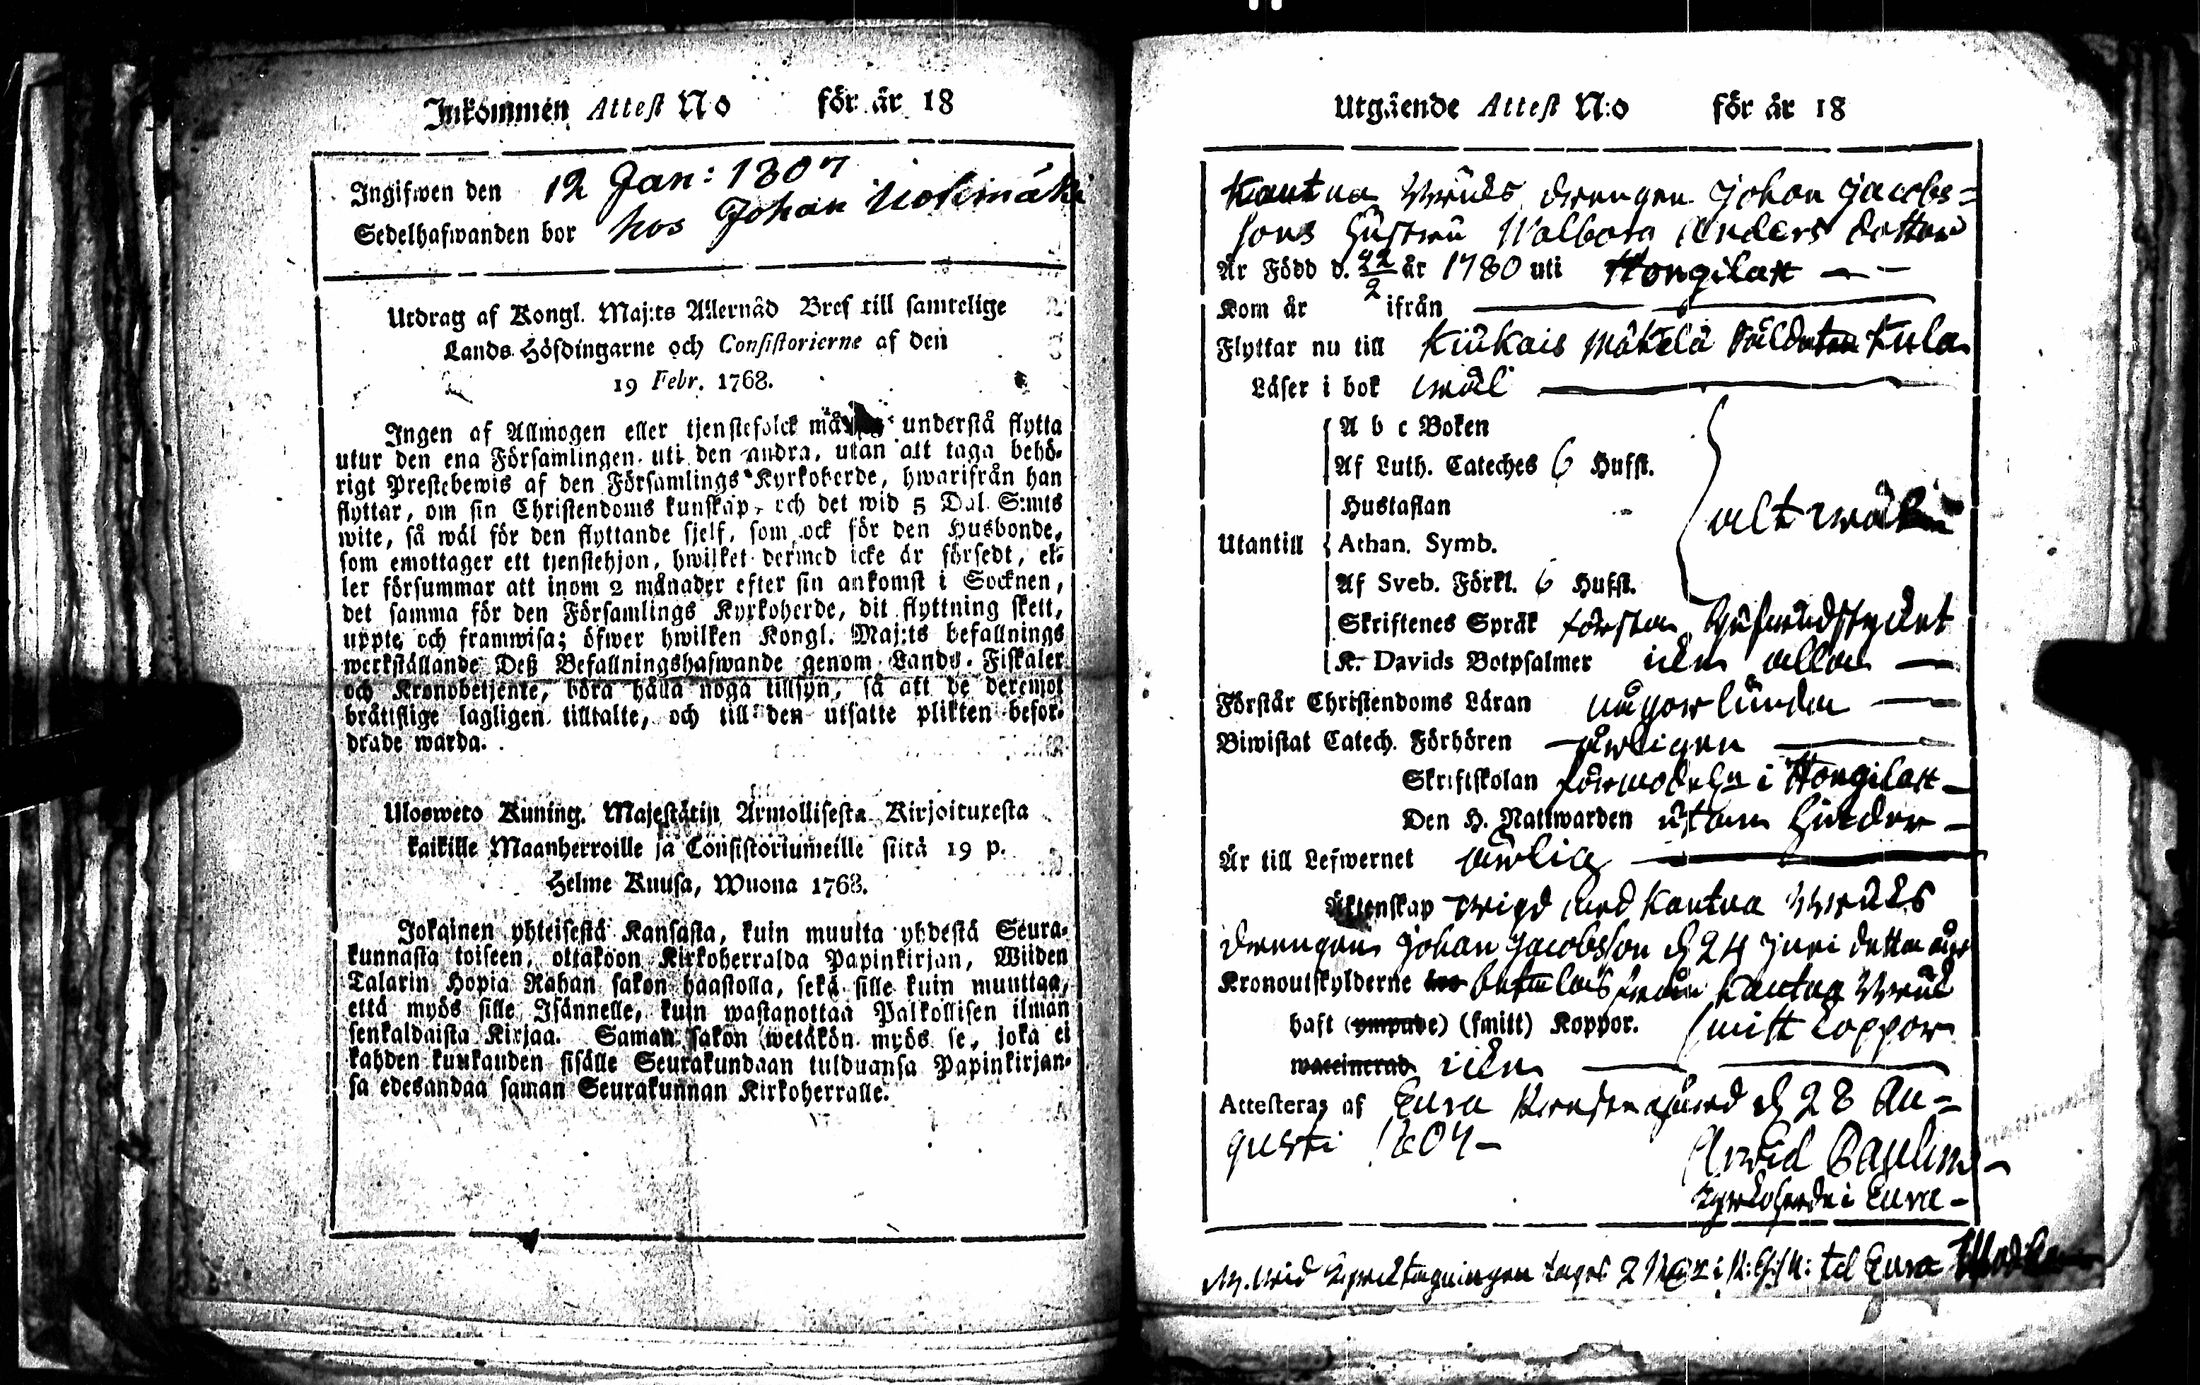 Inkommen Attest No för år 18
Ingifwen den 12 Jan: 1807
Sedelhafwanden bor hos Johan Uotimäki
Utdrag af Kongl. Maj:ts Allernåd Bref till samtelige
Lands Höfdingarne och Consistorierne af den
19 Febr. 1768.
Ingen af Allmogen eller tjenstefolck må understå flytta
utur den ena Församlingen uti den andra, utan att taga behö-
rigt Prestebewis af den Församlings Kyrkoherde, hwarifrån han
flyttar, om sin Christendoms kunskap, och det wid 5 Dal. S:mts
wite, så wäl för den flyttande sjelf, som ock för den Husbonde,
som emottager ett tjenstehjon, hwilket dermed icke är försedt, el-
ler försummar att inom 2 månader efter sin ankomst i Socknen,
det samma för den Församlings Kyrkoherde, dit flyttning skett,
uppte och framwisa; öfwer hwilken Kongl. Maj:ts befallnings
werkställande Deß Befallningshafwande genom Lands-Fiskaler
och Kronobetjente, böra hålla noga tillsyn, så att de deremot
bråttslige lagligen tilltalte, och till den utsatte plikten befor-
drade warda.
Ulosweto Kuning. Majestätin Armollisesta Kirjoituxesta
kaikille Maanherroille ja Consistoriumeille siitä 19 p.
Helme Kuusa, Wuona 1768.
Jokainen yhteisestä Kansasta, kuin muutta yhdestä Seura-
kunnasta toiseen, ottakoon Kirkoherralda Papinkirjan, Wiiden
Talarin Hopia Rahan sakon haastolla, sekä sille kuin muuttaa,
että myös sille Isännelle, kuin wastanottaa Palkollisen ilman
senkaldaista Kirjaa. Saman sakon wetäkön myös se, joka ei
kahden kuukauden sisälle Seurakundaan tulduansa Papinkirjan-
sa edesandaa saman Seurakunnan Kirkoherralle.
Utgående Attest N:o för år 18
Kautua drengen Johan Jacobs=
sons hustru Walborg Anders dotter
Är Född d. 22/2 år 1780 uti Hongilax
Kom år ifrån
Flyttar nu till Kiukais Mäkelä Kula
Läser i bok wäl
A b c Boken
Af Luth. Cateches 6 Hufst.
Hustaflan
Utantill Athan. Symb. alt
Af Sveb. Förkl. 6 Hufst.
Skriftenes Språk första hufwudstycket
K. Davids Botpsalmer icke alla
Förstår Christendoms Läran någorlunda
Biwistat Catech. Förhören årligen
Skriftskolan förmodel: i Hongilax
Den H. Nattwarden utan hinder
Är till Lefwernet ärlig
Äktenskap wigd med Kautua
drengen Johan Jacobsson d 24 Juni detta år
Kronoutskylderne betalas från Kautua
haft (ympade) (smitt) Koppor. smitt koppor
waccinerad icke
Attesteras af Eura d 28 Au=
gusti 1804
Arvid Paulin
Kyrkoherde i Eura